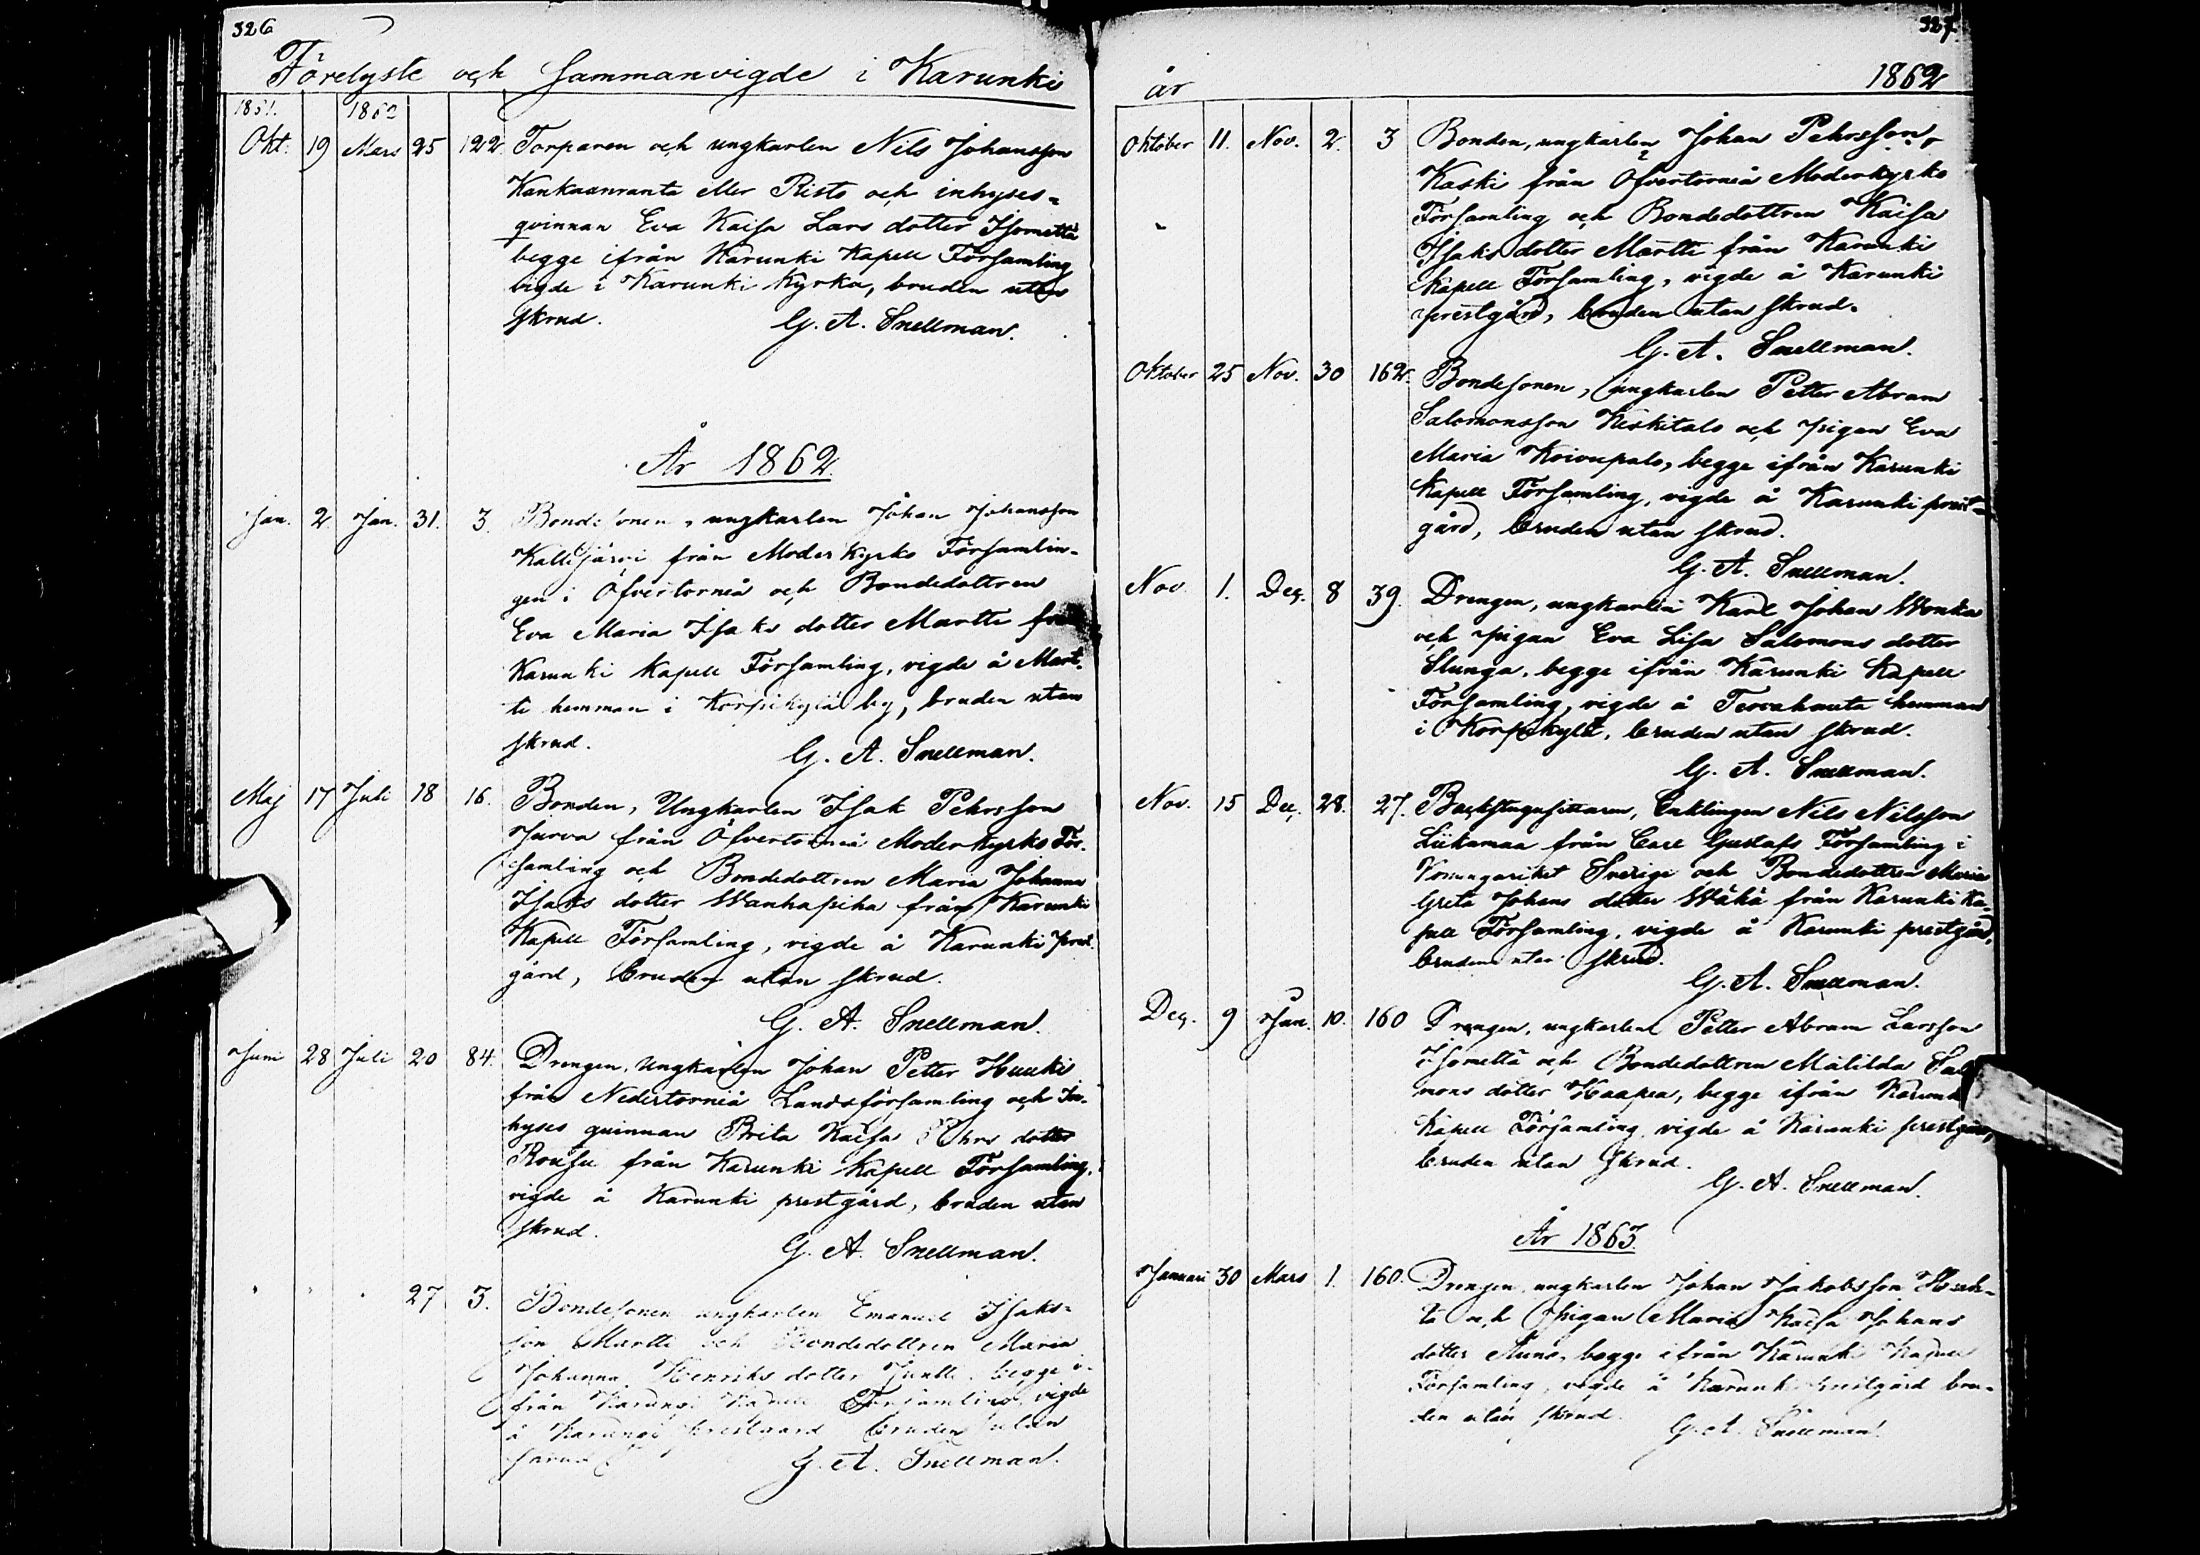 326
Förelyste och Sammanvigde i Karunki
1851. 1862
Okt. 19 Mars 25 122. Torparen och ungkarlen Nils Johansson
Kankaanranta eller Risto och inhyses=
qvinnan Eva Kaisa Lars dotter Isometsä
begge ifrån Karunki Kapell Församling
vigde i Karunki Kyrka, bruden utan
skrud. G. A. Snellman.
År 1862.
Jan. 2. Jan. 31. 3. Bondesonen, ungkarlen Johan Johansson
Kallijärvi från Moderkyrko Församlin-
gen i Öfvertorneå och Bondedottren
Eva Maria Isaks dotter Martti från
Karunki Kapell Församling, vigde å Mart-
ti hemman i Korpikylä by, bruden utan
skrud. G. A. Snellman.
Maj 17 Juli 18 16. Bonden, Ungkarlen Isak Pehrsson
Jurva från Öfvertorneå Moderkyrko För-
samling och Bondedottren Maria Johanna
Isaks dotter Wanhapiha från Karunki
Kapell Församling, vigde å Karunki prest
gård, bruden utan skrud.
G. A. Snellman.
Juni 28 Juli 20 84. Drengen, Ungkarlen Johan Petter Huuki
från Nedertorneå Landsförsamling och In-
hyses qvinnan Brita Kaisa Pehrs dotter
Rousu från Karunki Kapell Församling,
vigde å Karunki prestgård, bruden utan
skrud. G. A. Snellman.
" " " 27 3. Bondesonen ungkarlen Emanuel Isaks=
son Martti och Bondedottren Maria
Johanna Henriks dotter Juntti, begge i-
från Karungi Kapell Församling, vigde
å Karungi prestgård bruden utan
skrud G. A. Snellman.
327.
år 1862
Oktober 11. Nov. 2. 3 Bonden, ungkarlen Johan Pehrsson
Kaski från Öfvertorneå Moderkyrko
Församling och Bondedottren Kaisa
Isaks dotter Martti från Karunki
Kapell Församling, vigde å Karunki
prestgård, bruden utan skrud.
G. A. Snellman.
Oktober 25 Nov. 30 162. Bondesonen, ungkarlen Petter Abram
Salomonsson Keskitalo och pigan Eva
Maria Koivupalo, begge ifrån Karunki
Kapell Församling, vigde å Karunki prest=
gård, bruden utan skrud.
G. A. Snellman.
Nov. 1. Dec. 8 39. Drengen, ungkarlen Karl Johan Wonka
och pigan Eva Lisa Salomons dotter
Slunga, begge ifrån Karunki Kapell
Församling, vigde å Tervahauta hemman
i Korpikylä, bruden utan skrud.
G. A. Snellman.
Nov. 15 Dec. 28. 27. Backstugusittaren, Enklingen Nils Nilsson
Liikamaa från Carl Gustafs Församling i
Konungariket Sverige och Bondedottren Maria
Greta Johans dotter Wähä från Karunki Ka-
pell Församling, vigde å Karunki prestgård,
bruden utan skrud.
G. A. Snellman.
Dec. 9 Jan. 10. 160 Drengen, ungkarlen Petter Abram Larsson
Isomettä och Bondedottren Matilda Salo
mons dotter Haapea, begge ifrån Karunki
Kapell Församling, vigde å Karunki prestgård,
bruden utan skrud.
G. A. Snellman.
År 1863.
Januari 30 Mars 1. 160. Drengen, ungkarlen Johan Jakobsson
och pigan Maria Kaisa Johans
dotter Auno, begge ifrån Karunki Kapell
Församling, vigde å Karunki prestgård bru-
den utan skrud. G. A. Snellman.